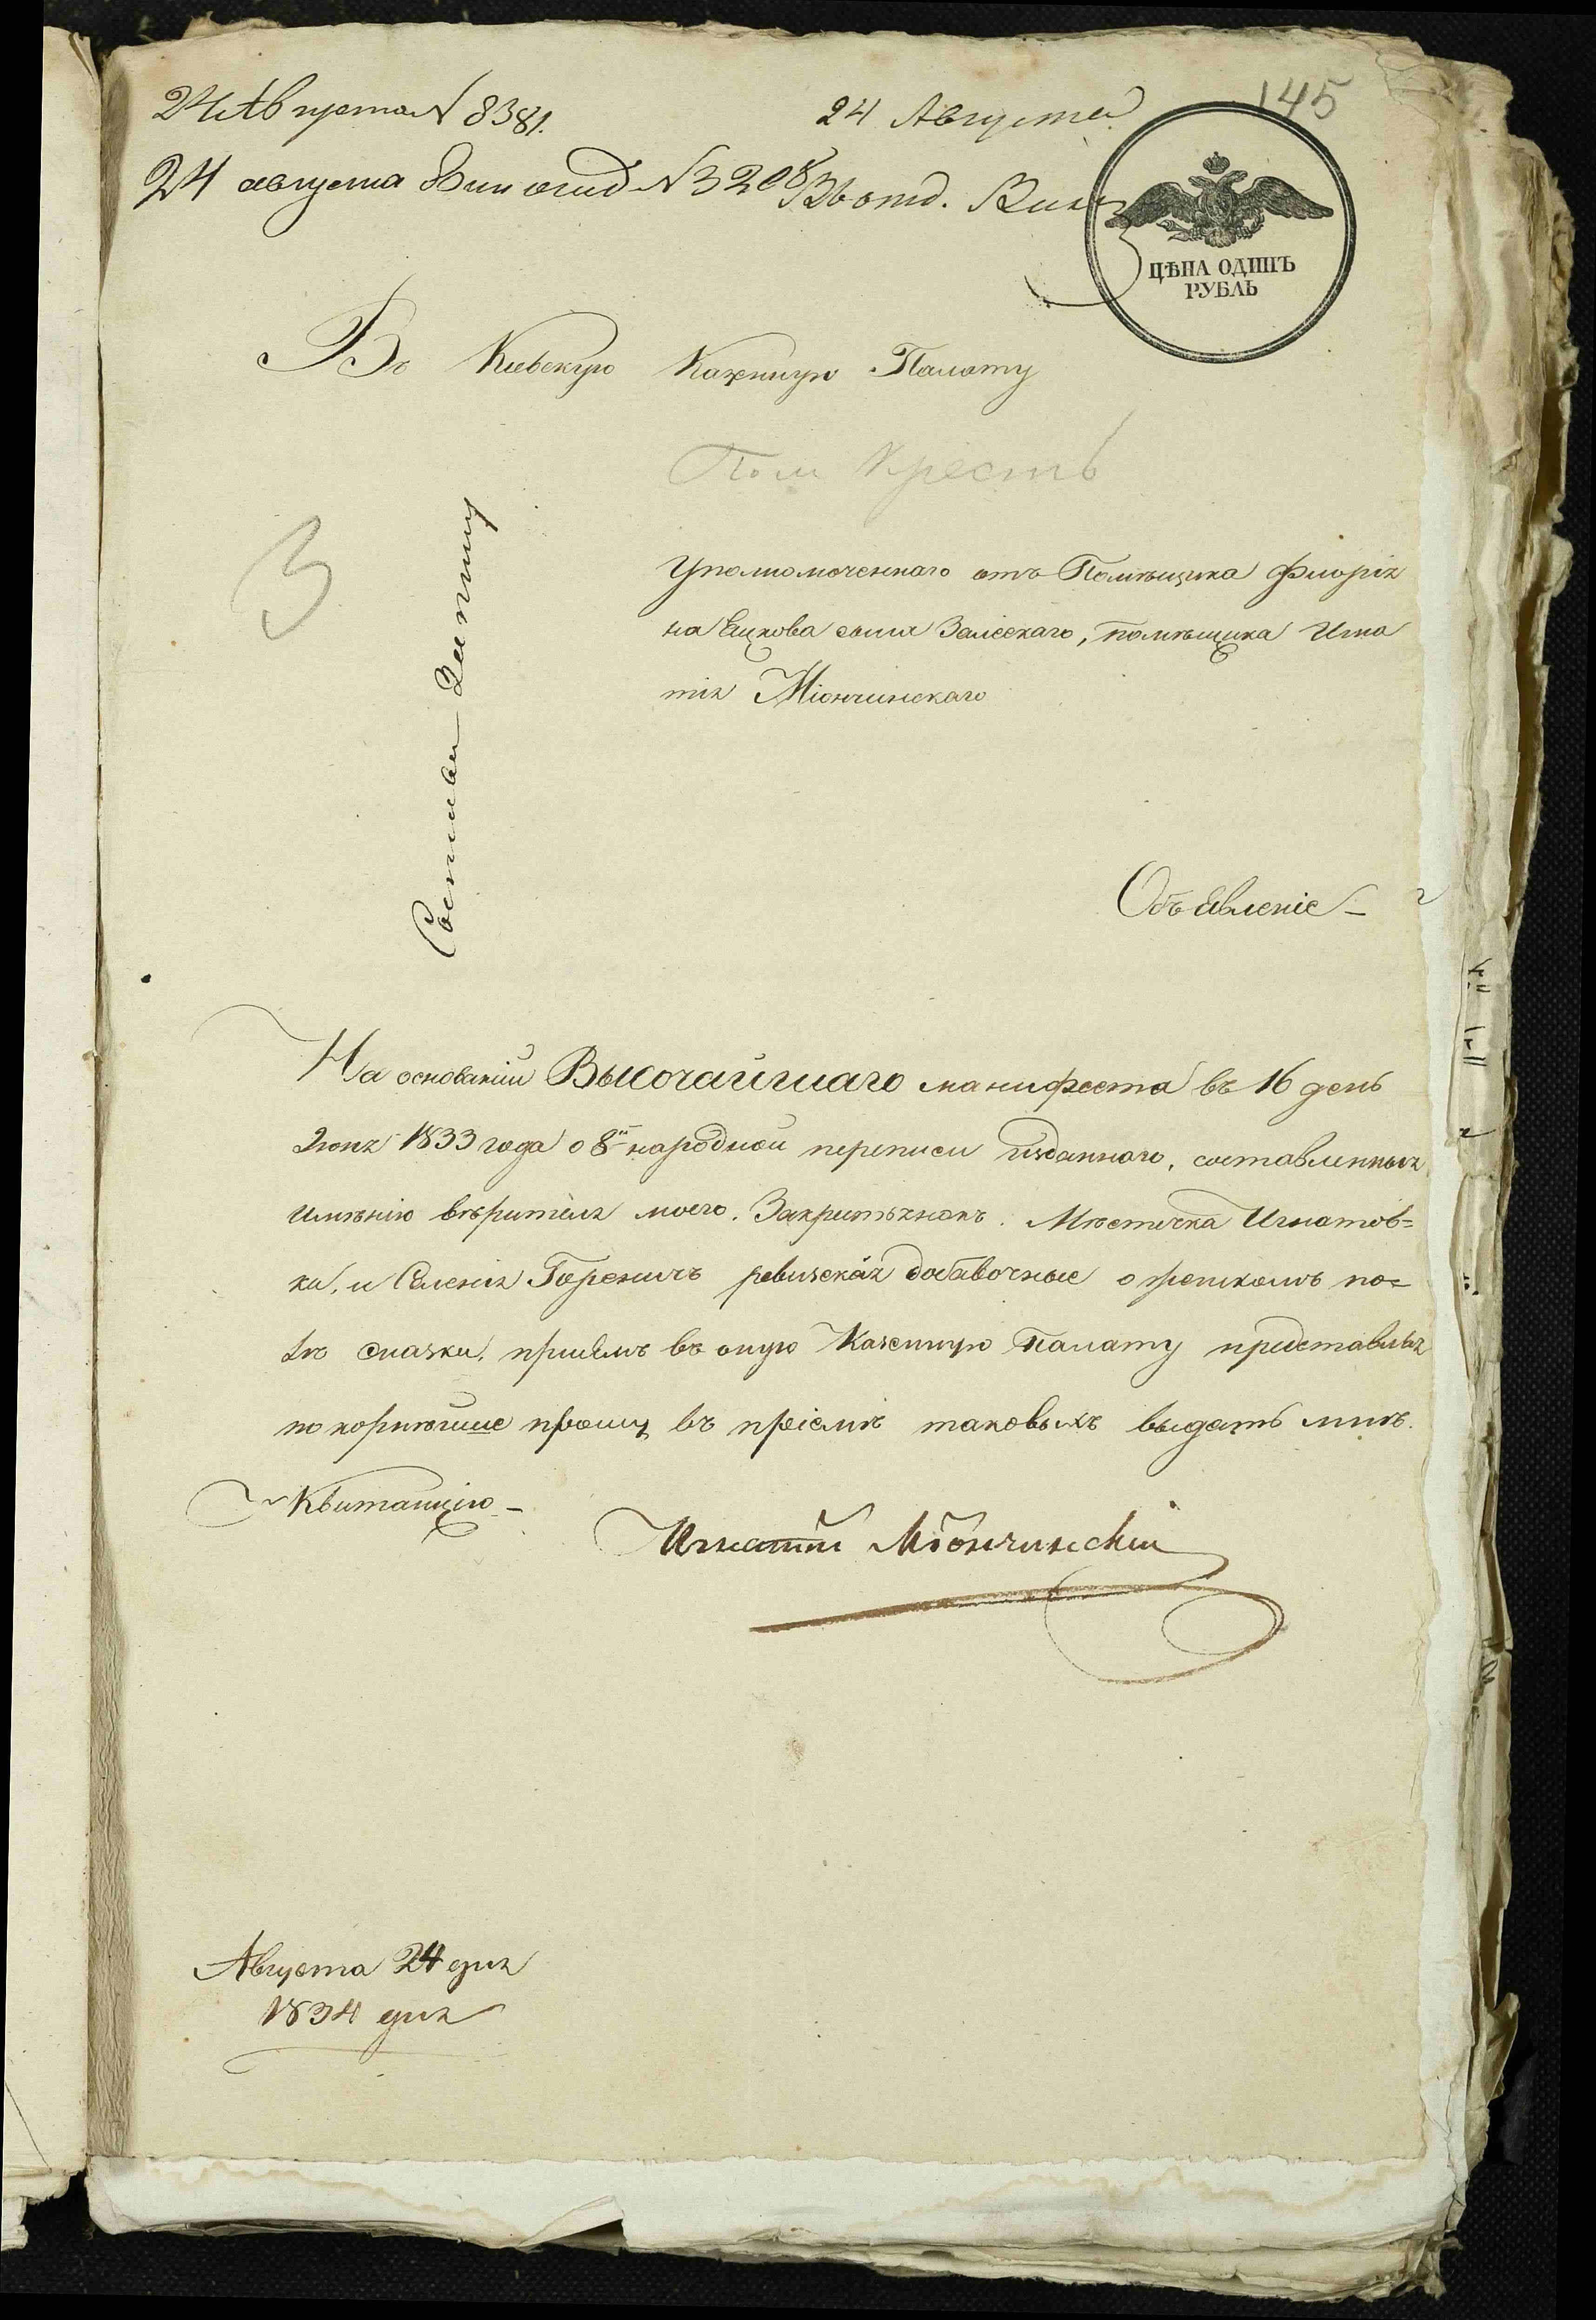 145
24 Августа N 8381.
24 Августа
24 августа N 3208
Въ отд.
ЦѢНА ОДИНЪ
РУБЛЬ
Въ Кіевскую Казенную Палату
Пом Крест
3
Уполномоченнаго отъ Помѣщика Флорія
на Яцкова сына Залескаго, помѣщика Игна
тія Міончинскаго
Объявленіе
На основаніи Высочайшаго манифеста въ 16 день
Іюня 1833 года о 8й народной переписи изданнаго, составленныя
имѣнію вѣрителя моего. Мѣстечка Игнатов=
ки, и Селенія Гореничъ ревизская добавочные о женскомъ по=
лѣ сказки, въ оную Казенную Палату представляя
покорнѣйше прошу въ пріемѣ таковыхъ выдать мнѣ.
Квитанцію
Игнатій Міончинскій
Августа 24 дня
1834 дня